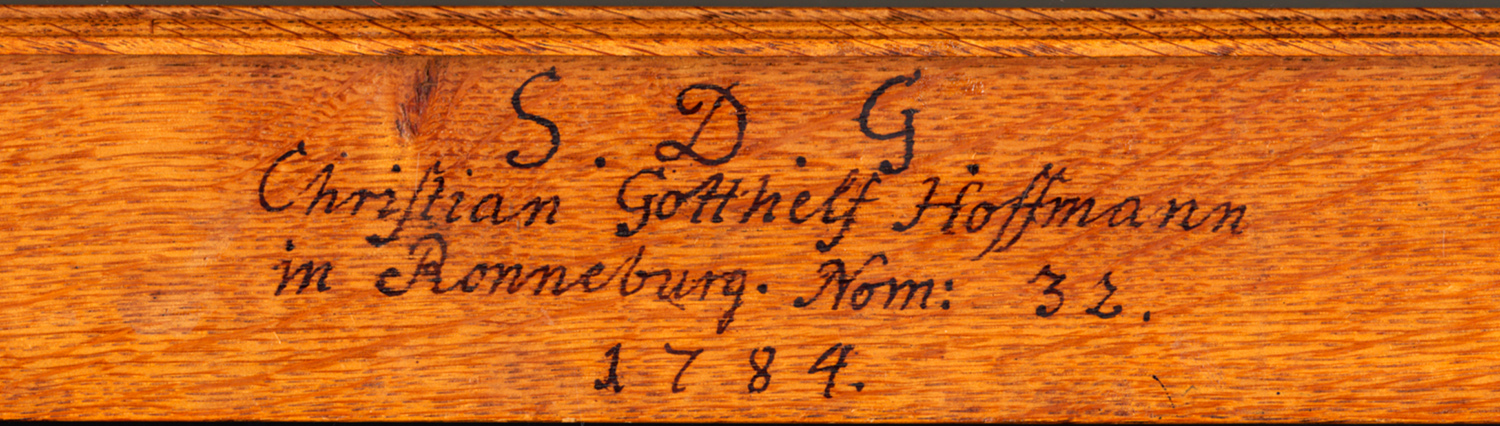 S. D. G
Chriſtian Gotthelf Hoffmann
in Ronneburg. Nom: 32.
1784.